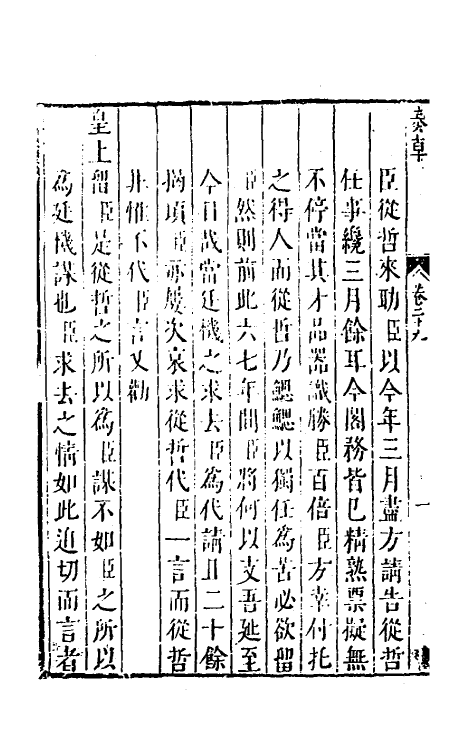 奏草
卷二十九
一
臣從哲來助臣以今年三月盡方請告從哲
任事纔三月餘耳今閣務皆已精熟票擬無
不停當其才品器識勝臣百倍臣方幸付托
之得人而從哲乃鰓鰓以獨任為苦必欲留
臣然則前此六七年間臣將何以支吾延至
今日哉當廷機之求去臣為代請且二十餘
揭頃臣亦屢次哀求從哲代臣一言而從哲
非惟不代臣言又勸
皇上留臣是從哲之所以為臣謀不如臣之所以
為廷機謀也臣求去之情如此迫切而言者